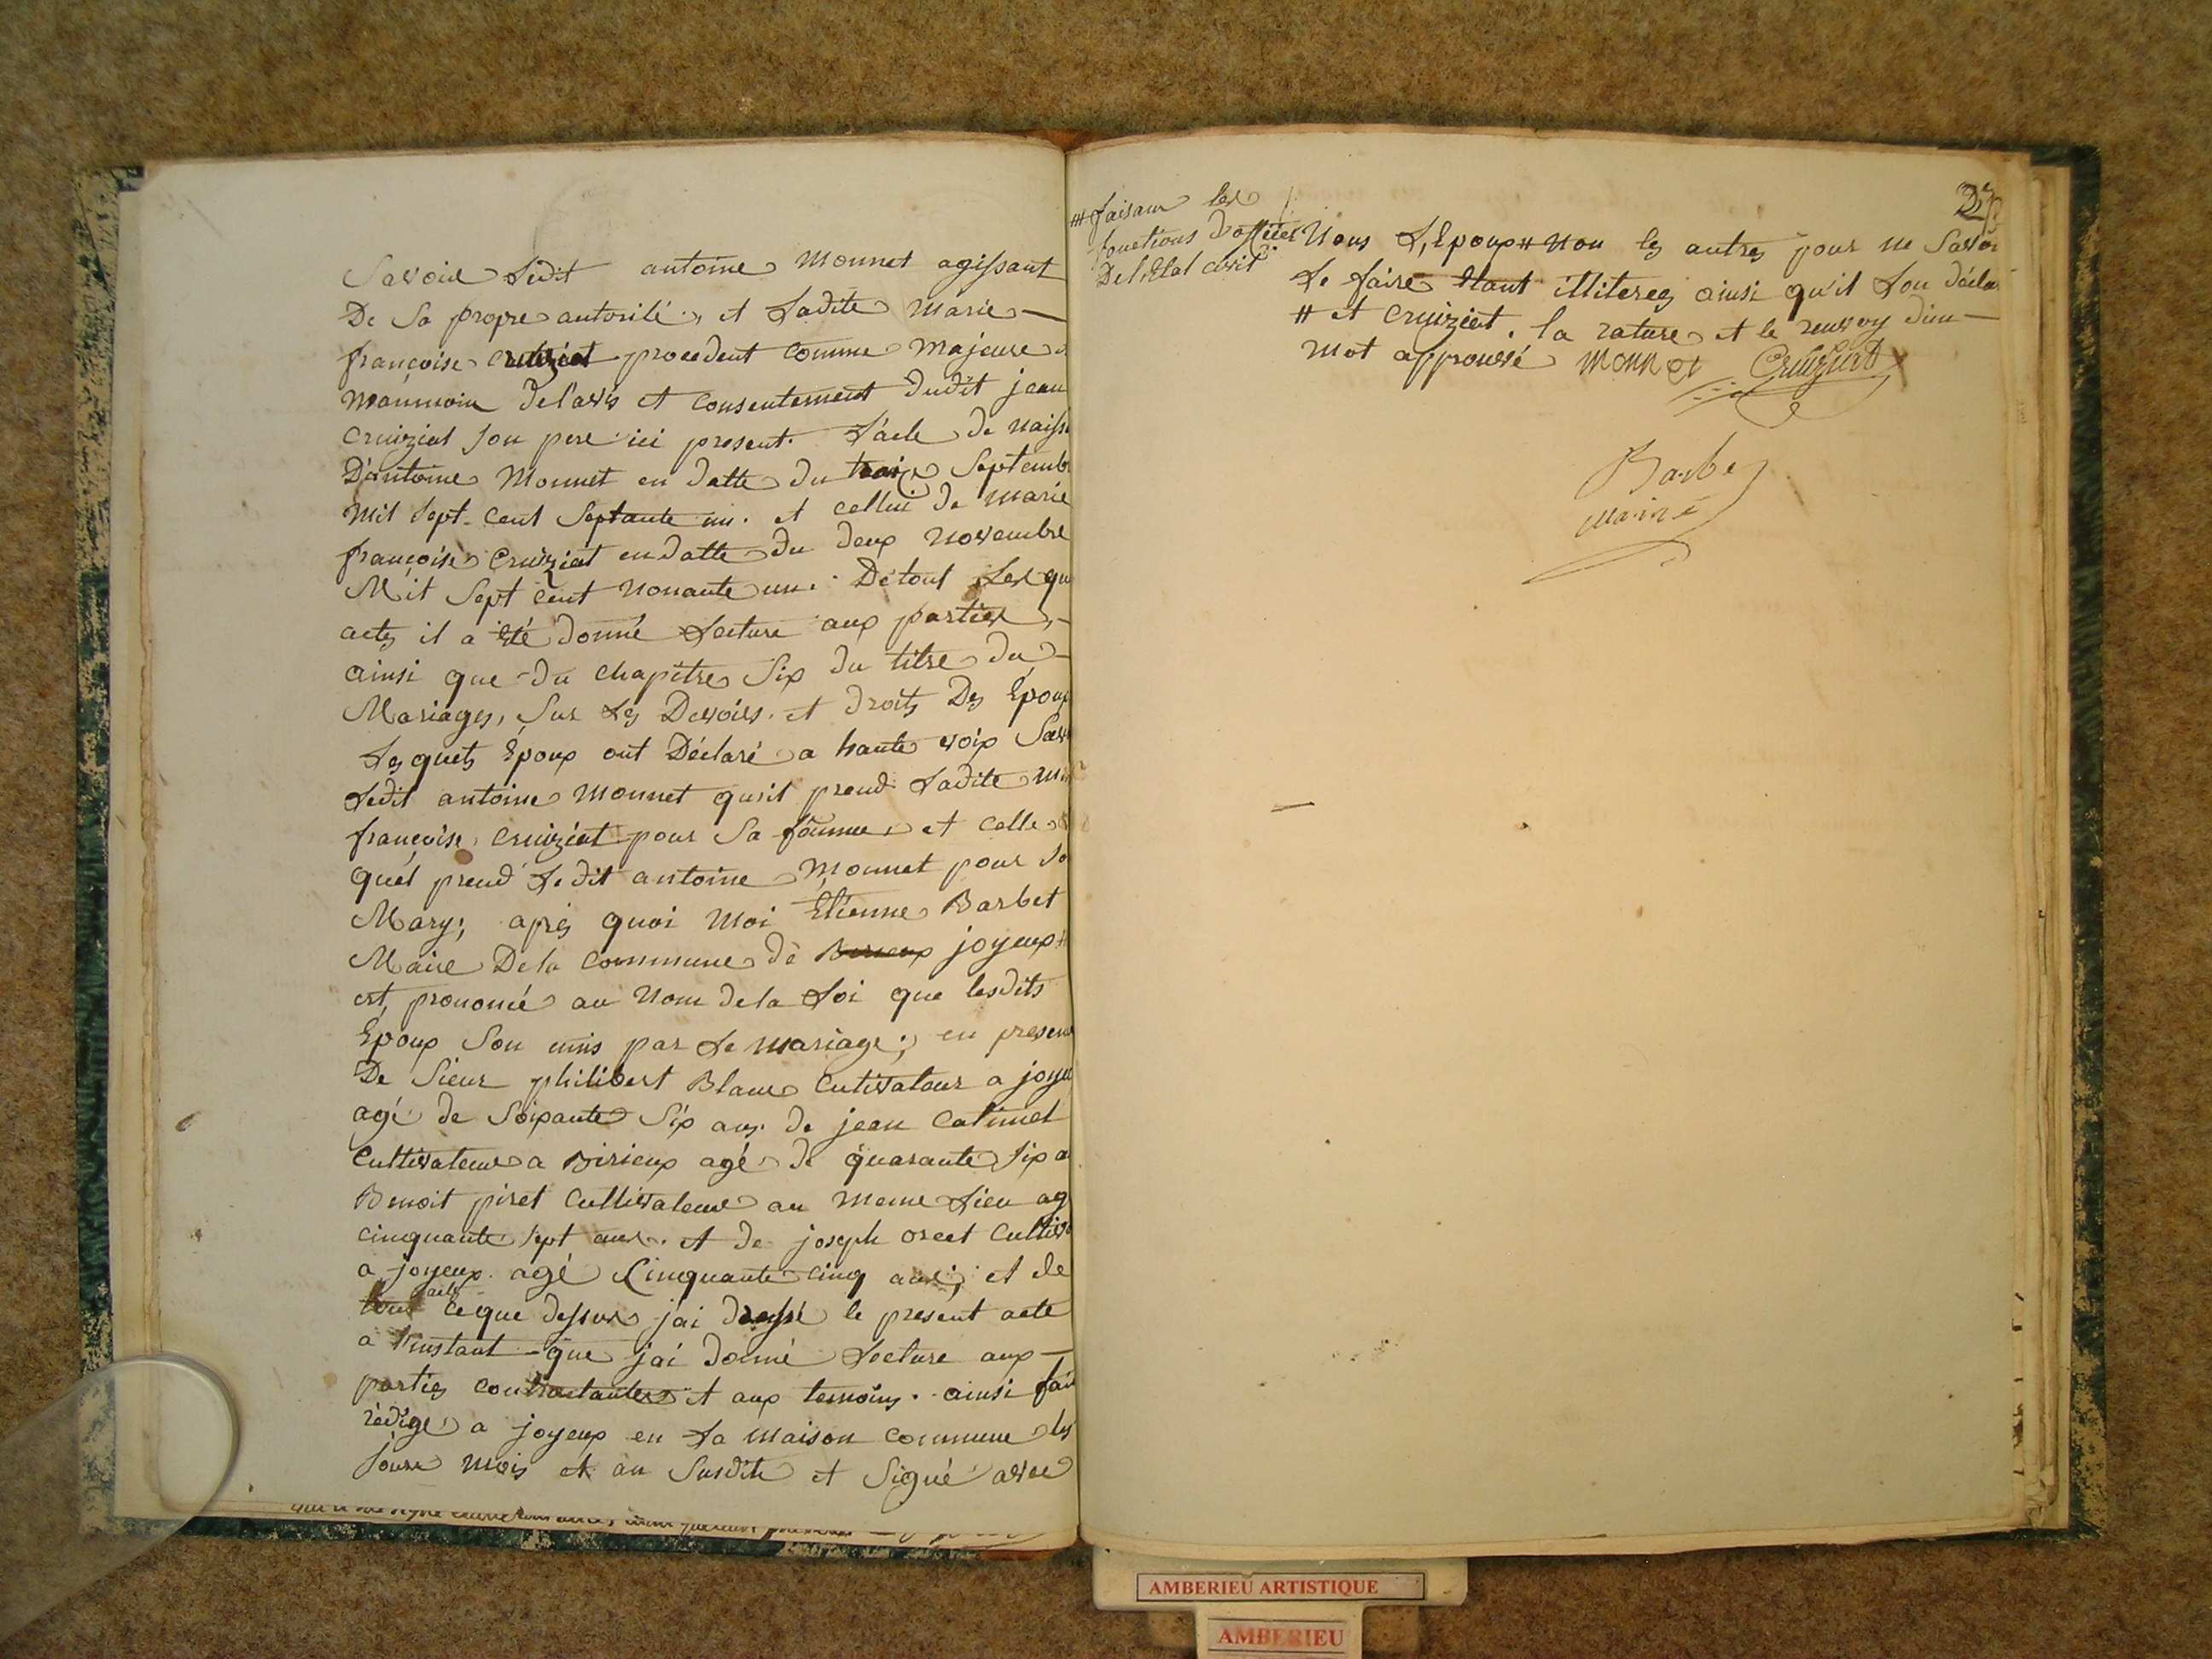 Savoir Ledit antoine Monnet agissant
De Sa propre autorité, et Ladite Marie
françoise Cruiziat procedent Comme Majeure
Delavis et Consentement dudit jean
Cruiziat Son pere ici present. L'acte de Naiss
D'antoine Monnet en datte du Septemb
Mil Sept Cent Septante un. et Cellui de Marie
françoise Cruiziat en datte du deux Novembre
Mil Sept Cent Nonante un. De tout Les qu
actes il a été donné Lecture aux parties,
ainsi que du Chapitre Six du titre du
Mariages, Sur Les Devoirs et droits Des Epoux
Lesquels Epoux ont Déclaré a haute voix Sav
Ledit antoine Monnet qu'il prend Ladite
françoise Cruiziat pour Sa famme et Celle
quel prend Ledit antoine Monnet pour So
Mary; après quoi Moi Etienne Barbet
Maire De la Commune de Birieux joyeux #
est prononcé au Nom de la Loi que lesdits
Epoux Son unis par Le Mariage; en presen
De Sieur philibert Blanc Cutivateur a joye
agé de Soixante Six ans. de jean Catimel
Cultivateur a Birieux agé de quarante Six a
Benoit piret Cultivateur au Meme Lieu ag
Cinquante Sept ans. et de joseph orcet Cultiva
a joyeux. agé Cinquante Cinq ans; et de
Ce que dessus jai dressé le present acte
a l'instant que jai donné Lecture aux
parties Contractantes et aux temoins. ainsi fait
rédigé a joyeux en La Maison Commune les
jours Mois et an Susdits et Signé avec
# faisant les
fonctions d'officier
De l'Etat civil
27
Nous L'Epoux # Non les autres pour ne Savoi
Le faire Etant illiterez ainsi qu'il Son décla
# et Cruiziat. la rature et le renvoy d'un
Mot approuvé Monnet Cruiziat
Barbet
Maire
AMBERIEU ARTISTIQUE
AMBERIEU